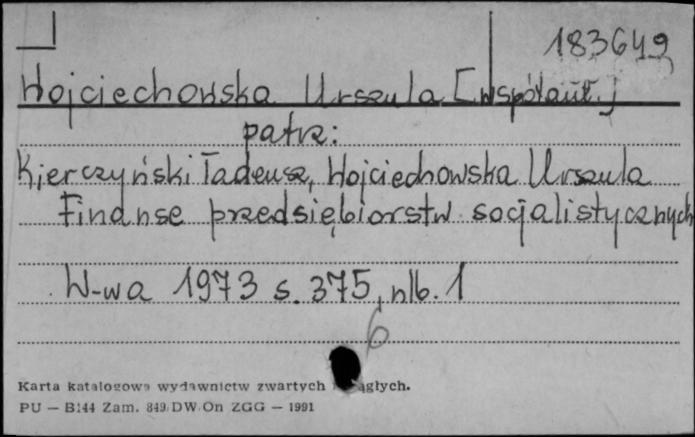 183649
Wojciechowska Urszula [współaut.]
patrz:
Kierczyński Tadeusz, Wojciechowska Urszula
Finanse przedsiębiorstw socjalistycznych
W-wa 1973 s. 375, nlb. 1
6
Karta katalogowa wydawnictw zwartych ągłych.
PU — B144 Zam. 849/DW/On ZGG — 1991